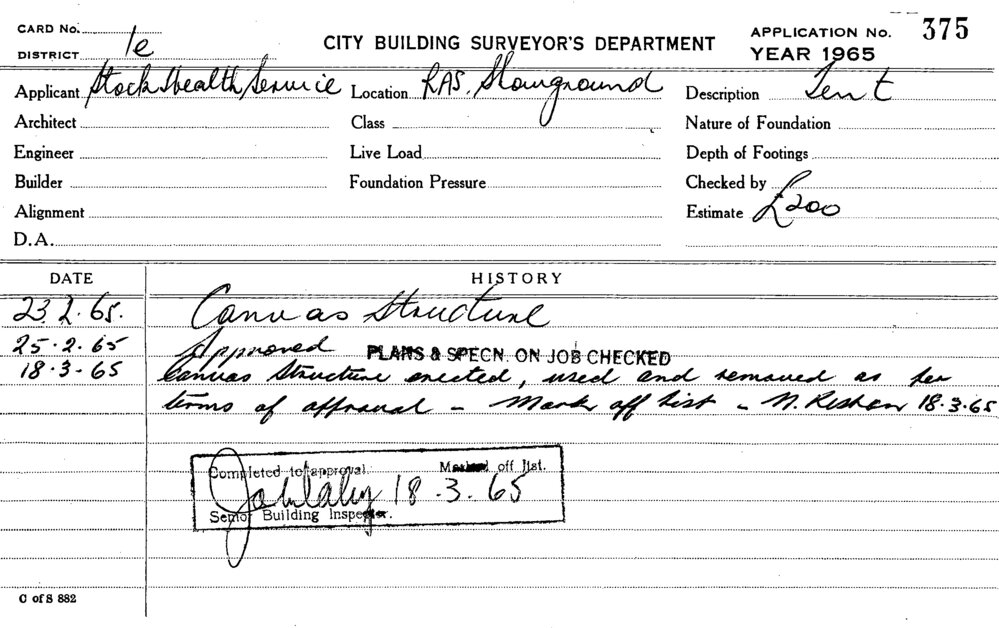 CARD No.
APPLICATION No. 375
DISTRICT 1e
CITY BUILDING SURVEYOR'S DEPARTMENT
YEAR 1965
Applicant Stock Health Service Location RAS. Showground Description Tent
Architect Class Nature of Foundation
Engineer Live Load Depth of Footings
Builder Foundation Pressure Checked by
Alignment Estimate £200
D.A.
DATE HISTORY
23.2.65. Canvas Structure
25.2.65 Approved PLANS & SPECN. ON JOB CHECKED
18.3.65 Canvas Structure erected, used and removed as per
terms of approval - Mark off list - N. 18.3.65
Completed to approval. Marked off list.
18.3.65
Senior Building Inspector.
C of S 882